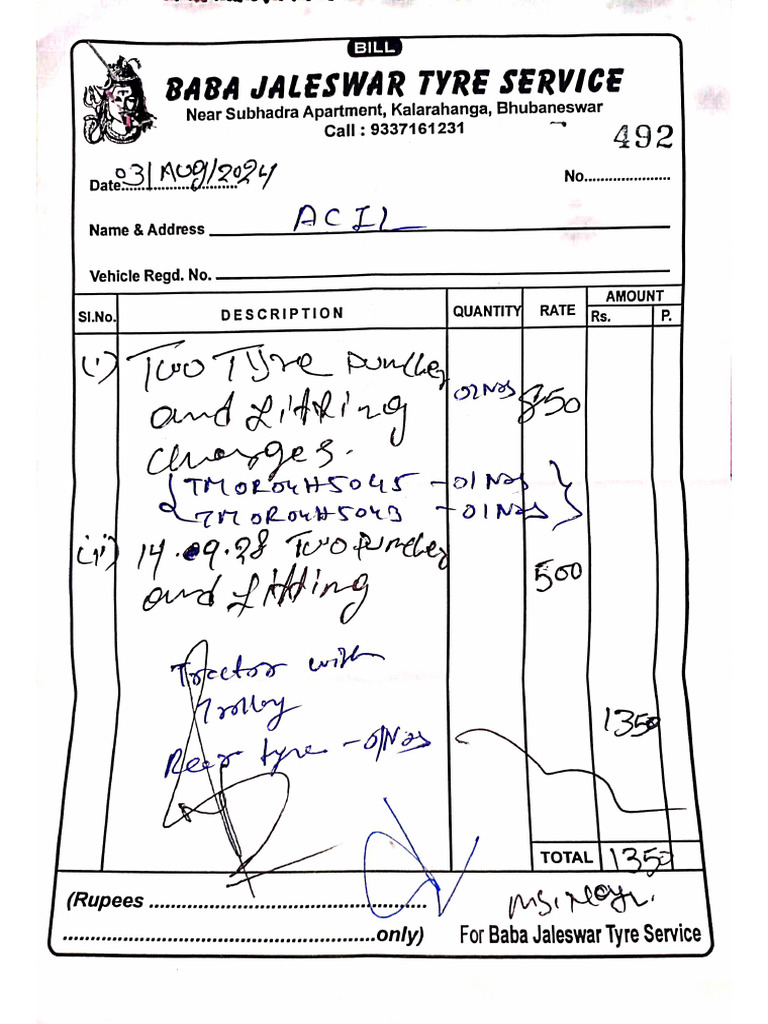 BILL
BABA JALESWAR TYRE SERVICE
Near Subhadra Apartment, Kalarahanga, Bhubaneswar
Call : 9337161231
492
Date: 03/AUG/2024 No.
Name & Address ACIL
Vehicle Regd. No.
Sl.No. DESCRIPTION QUANTITY RATE AMOUNT
Rs. P.
(i) Two Tyre puncher 02Nos 850
and Litting
charges.
TMOR04H5045 - 01 Nos
TMOR04H5043 - 01 Nos
(ii) 14.09.28 Two puncher
and Litting 500
Tractor with
Trolley
1350
Rear tyre - 01Nos
TOTAL 1350
(Rupees
only) For Baba Jaleswar Tyre Service